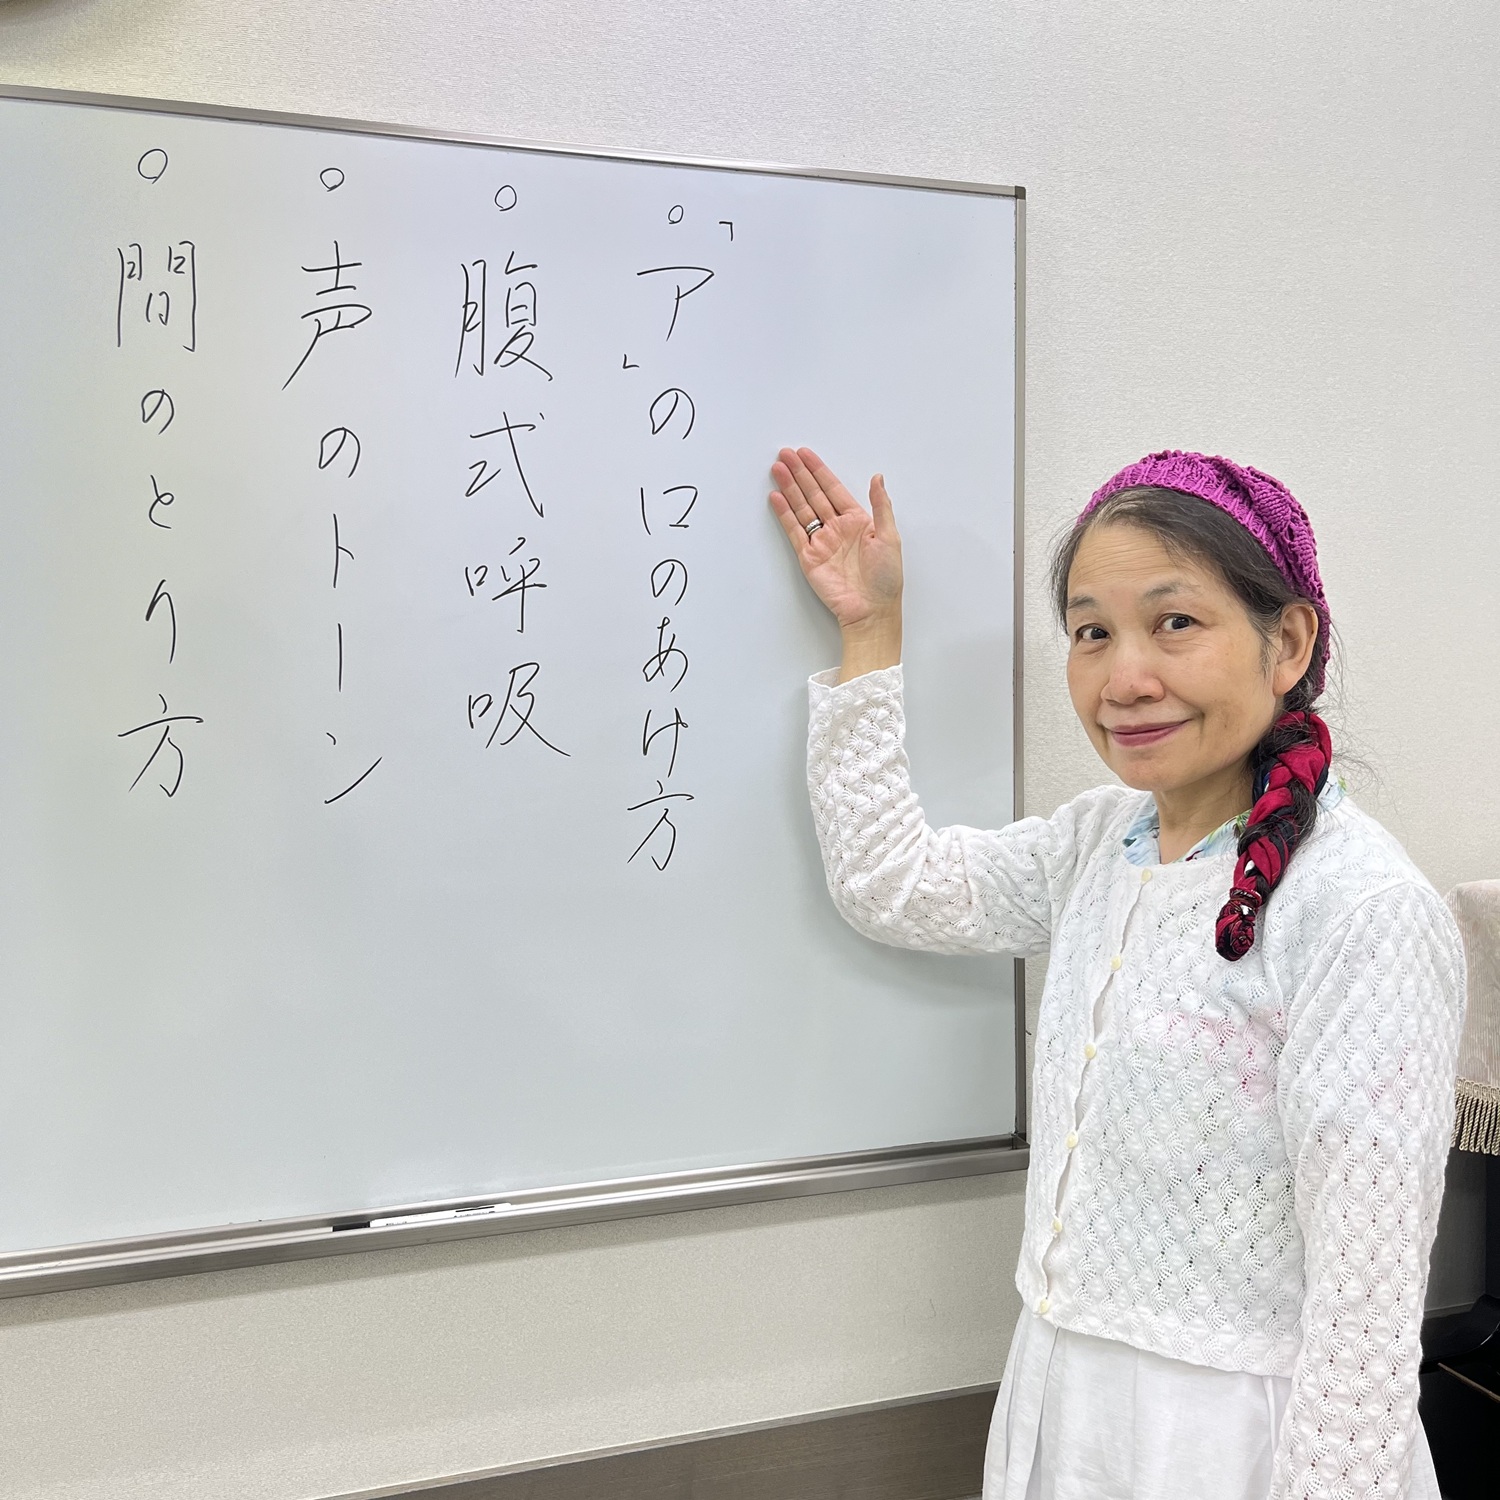 ○「ア」の口のあけ方
○腹式呼吸
○声のトーン
○間のとり方